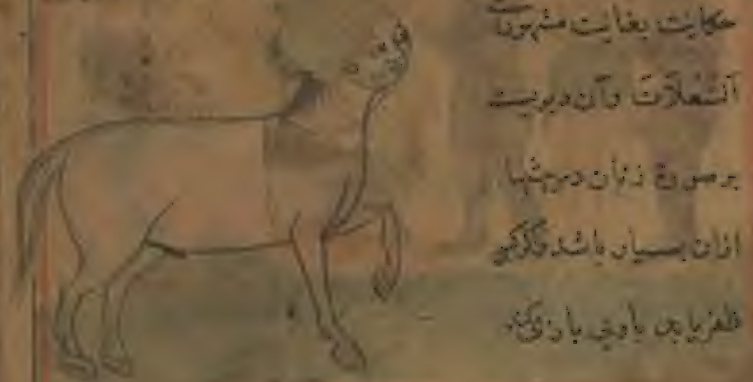 حکایت بغایت مشهورست
السعلات و آن دیویست
بر صورة زنان در بیشها
ازان بسیار باشد و اگر کسی
ظفر یابد با وی بازی کند